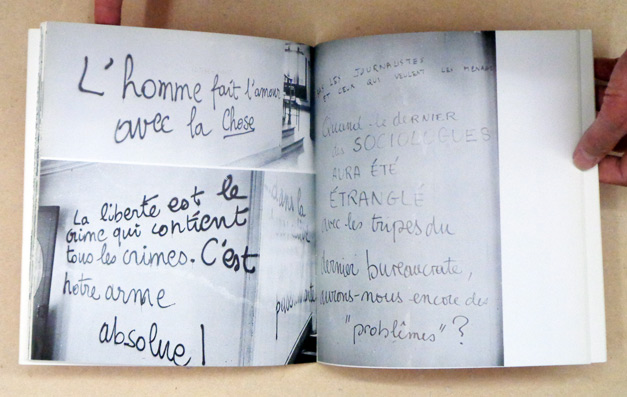 L'homme fait l'amour
avec la Chose
La liberté est le
crime qui contient
tous les crimes. C'est
notre arme
absolue!
dans la
LES JOURNALISTES
ET CEUX QUI VEULENT LES MÉNAGER
Quand le DERNIER
des SOCIOLOGUES
AURA ÉTÉ
ÉTRANGLÉ
avec les tripes du
dernier bureaucrate,
aurons-nous encore des
"problêmes"?